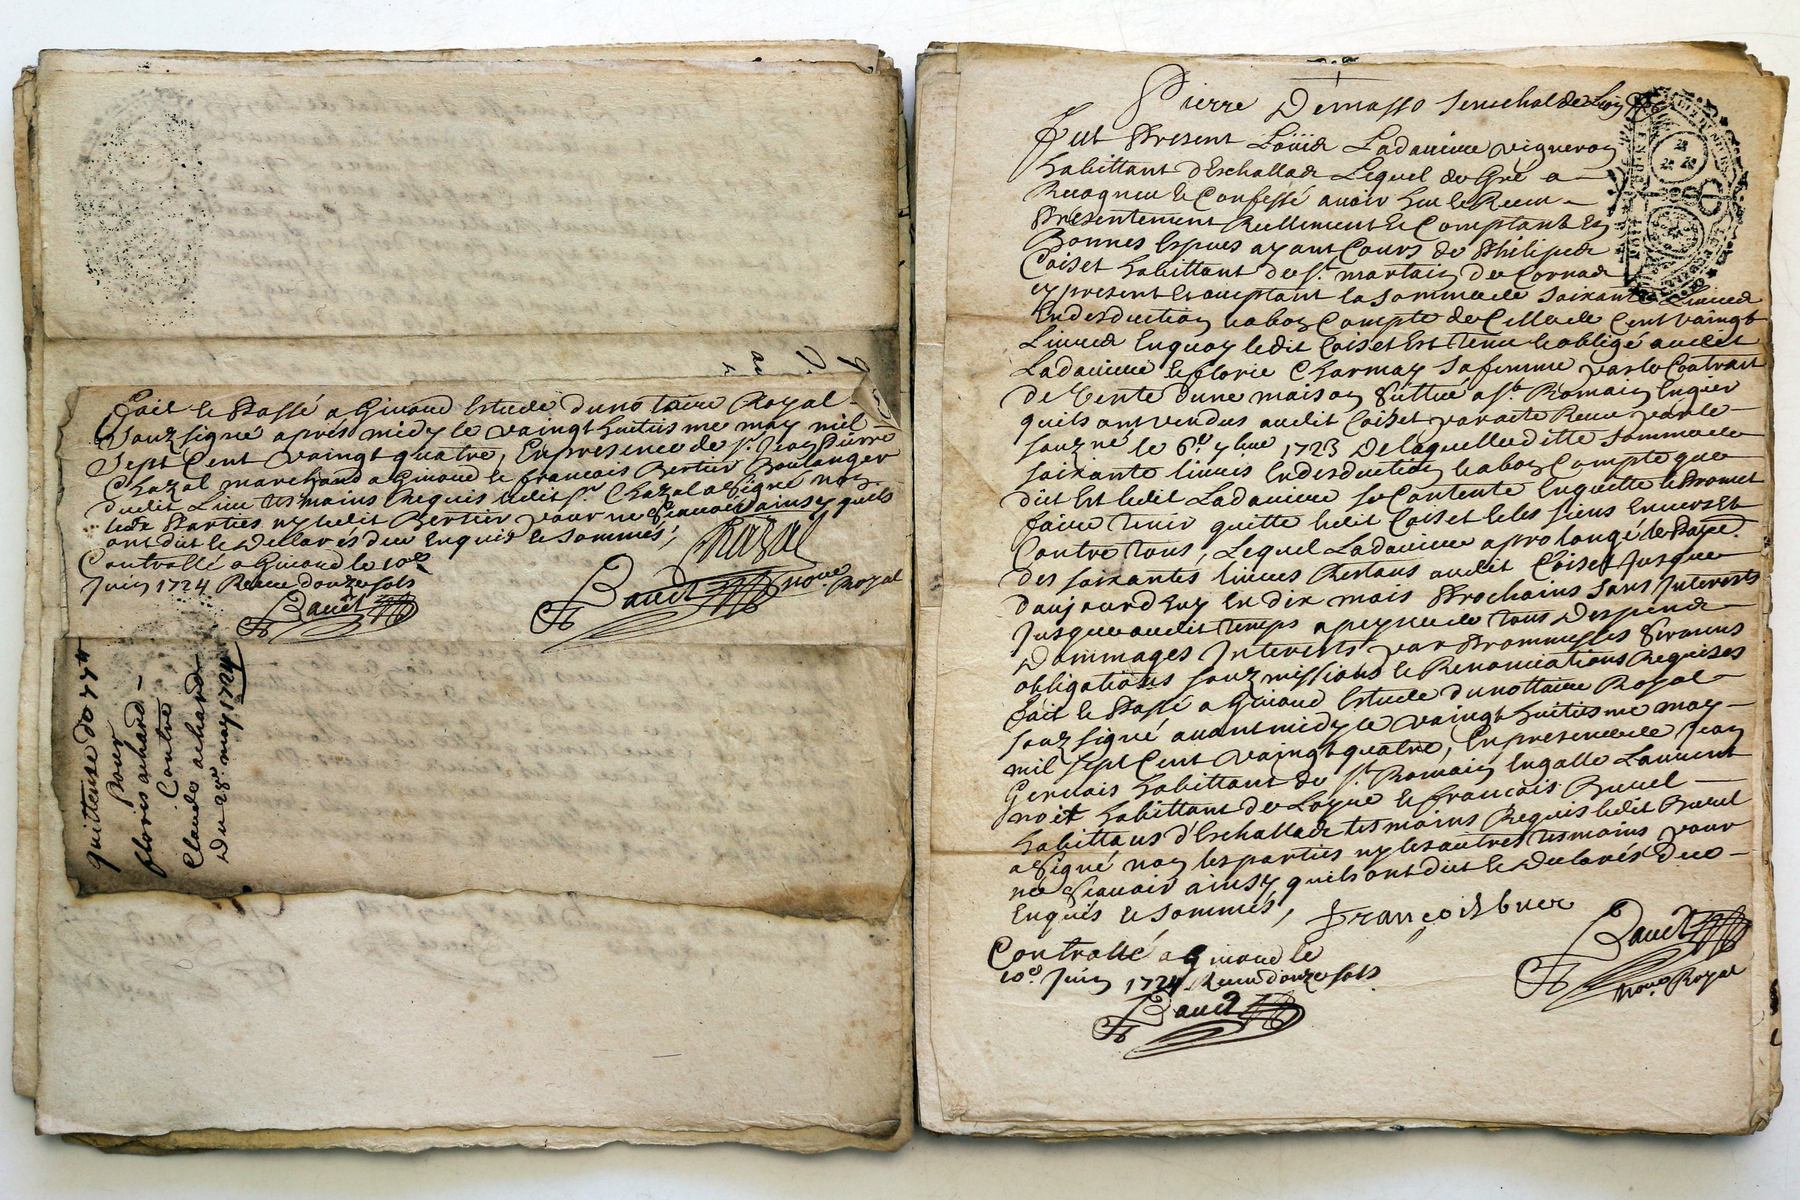 fait et Passé a Givord Estude du notaire Royal
Souz signé apres midy le vaingt huitiesme may mil
Sept Cent vaingt quatre, En presence de sr. Jean Pierre
Chazal marchand a Givord et francois Bertier Boulanger
dudit Lieu tesmoins Requis ledit sr. Chazal a Signé non
lesd. Parties ny ledit Bertier pour ne Scavoir ainsy quils
ont dit et declarés deu Enquis et sommés,
Chazal
Controllé a Givord le 10e
Juin 1724 Receu douze sols
Baudt
Baudt nore Royal
quittense de 77lt
Pour
floris achard
Contre
Claude achard
Du 28e may 1724
Pierre Demasso Seneschal de Lion
fut Present Loüis Ladavure vigneron
habittant d'Eschallas Lequel de Gré a
Recogneu et Confessé avoir heu et Receu
Presentement Reellement et Comptant En
Bonnes Especes ayant Cours de Philipes
Coiset habittant de st. martain de Cornas
cy present et acceptant la somme de soixante Livres
En desduction et a bon Compte de Celle de Cent vaingt
Livres En quoy ledit Coiset Est tenu et obligé audit
Ladavure et florie Charmay sa femme par le Contrait
de Vente d'une maison Scittué a st. Romain En gier
quils ont vendus audit Coiset par acte Receu par le
souzné le 6e. 7bre 1723 De laquelle ditte somme de
soixante livres En desduction et a bon Compte que
dit Est ledit Ladavure se Contente En quitte et Promet
faire tenir quitte ledit Coiset et les siens Envers et
Contre tous, Lequel Ladavure a prolongé le Paye.
des soixantes livres Restans audit Coiset Jusque
d'aujourd'huy En dix mois Prochains sans Interests
Jusque audit temps a peyne de tous despens
Dommages Interests par Prommesses Serments
obligations souzmissions et Renonciations Requises
fait et Passé a Givord Estude du nottaire Royal
souz signé avant midy le vaingt huitiesme may
mil sept Cent vaingt quatre, En presence de Jean
Gervais habittant de st. Romain En galle Laurent
noit habittant de Loyre et francois Buuel
habittans d'Eschallas tesmoins Requis ledit Buuel
a Signé non les parties ny les autres tesmoins pour
ne Scavoir ainsy quils ont dit et Declarés De ce
Enquis et sommés,
Controllé a Givord le
10e. Juin 1724 Receu douze sols
Baudt
Baudt
nore. Royal